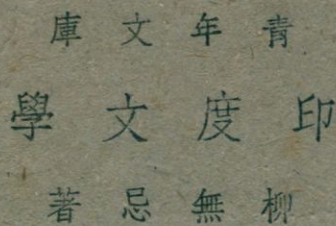 青年文庫
印度文學
柳無忌著